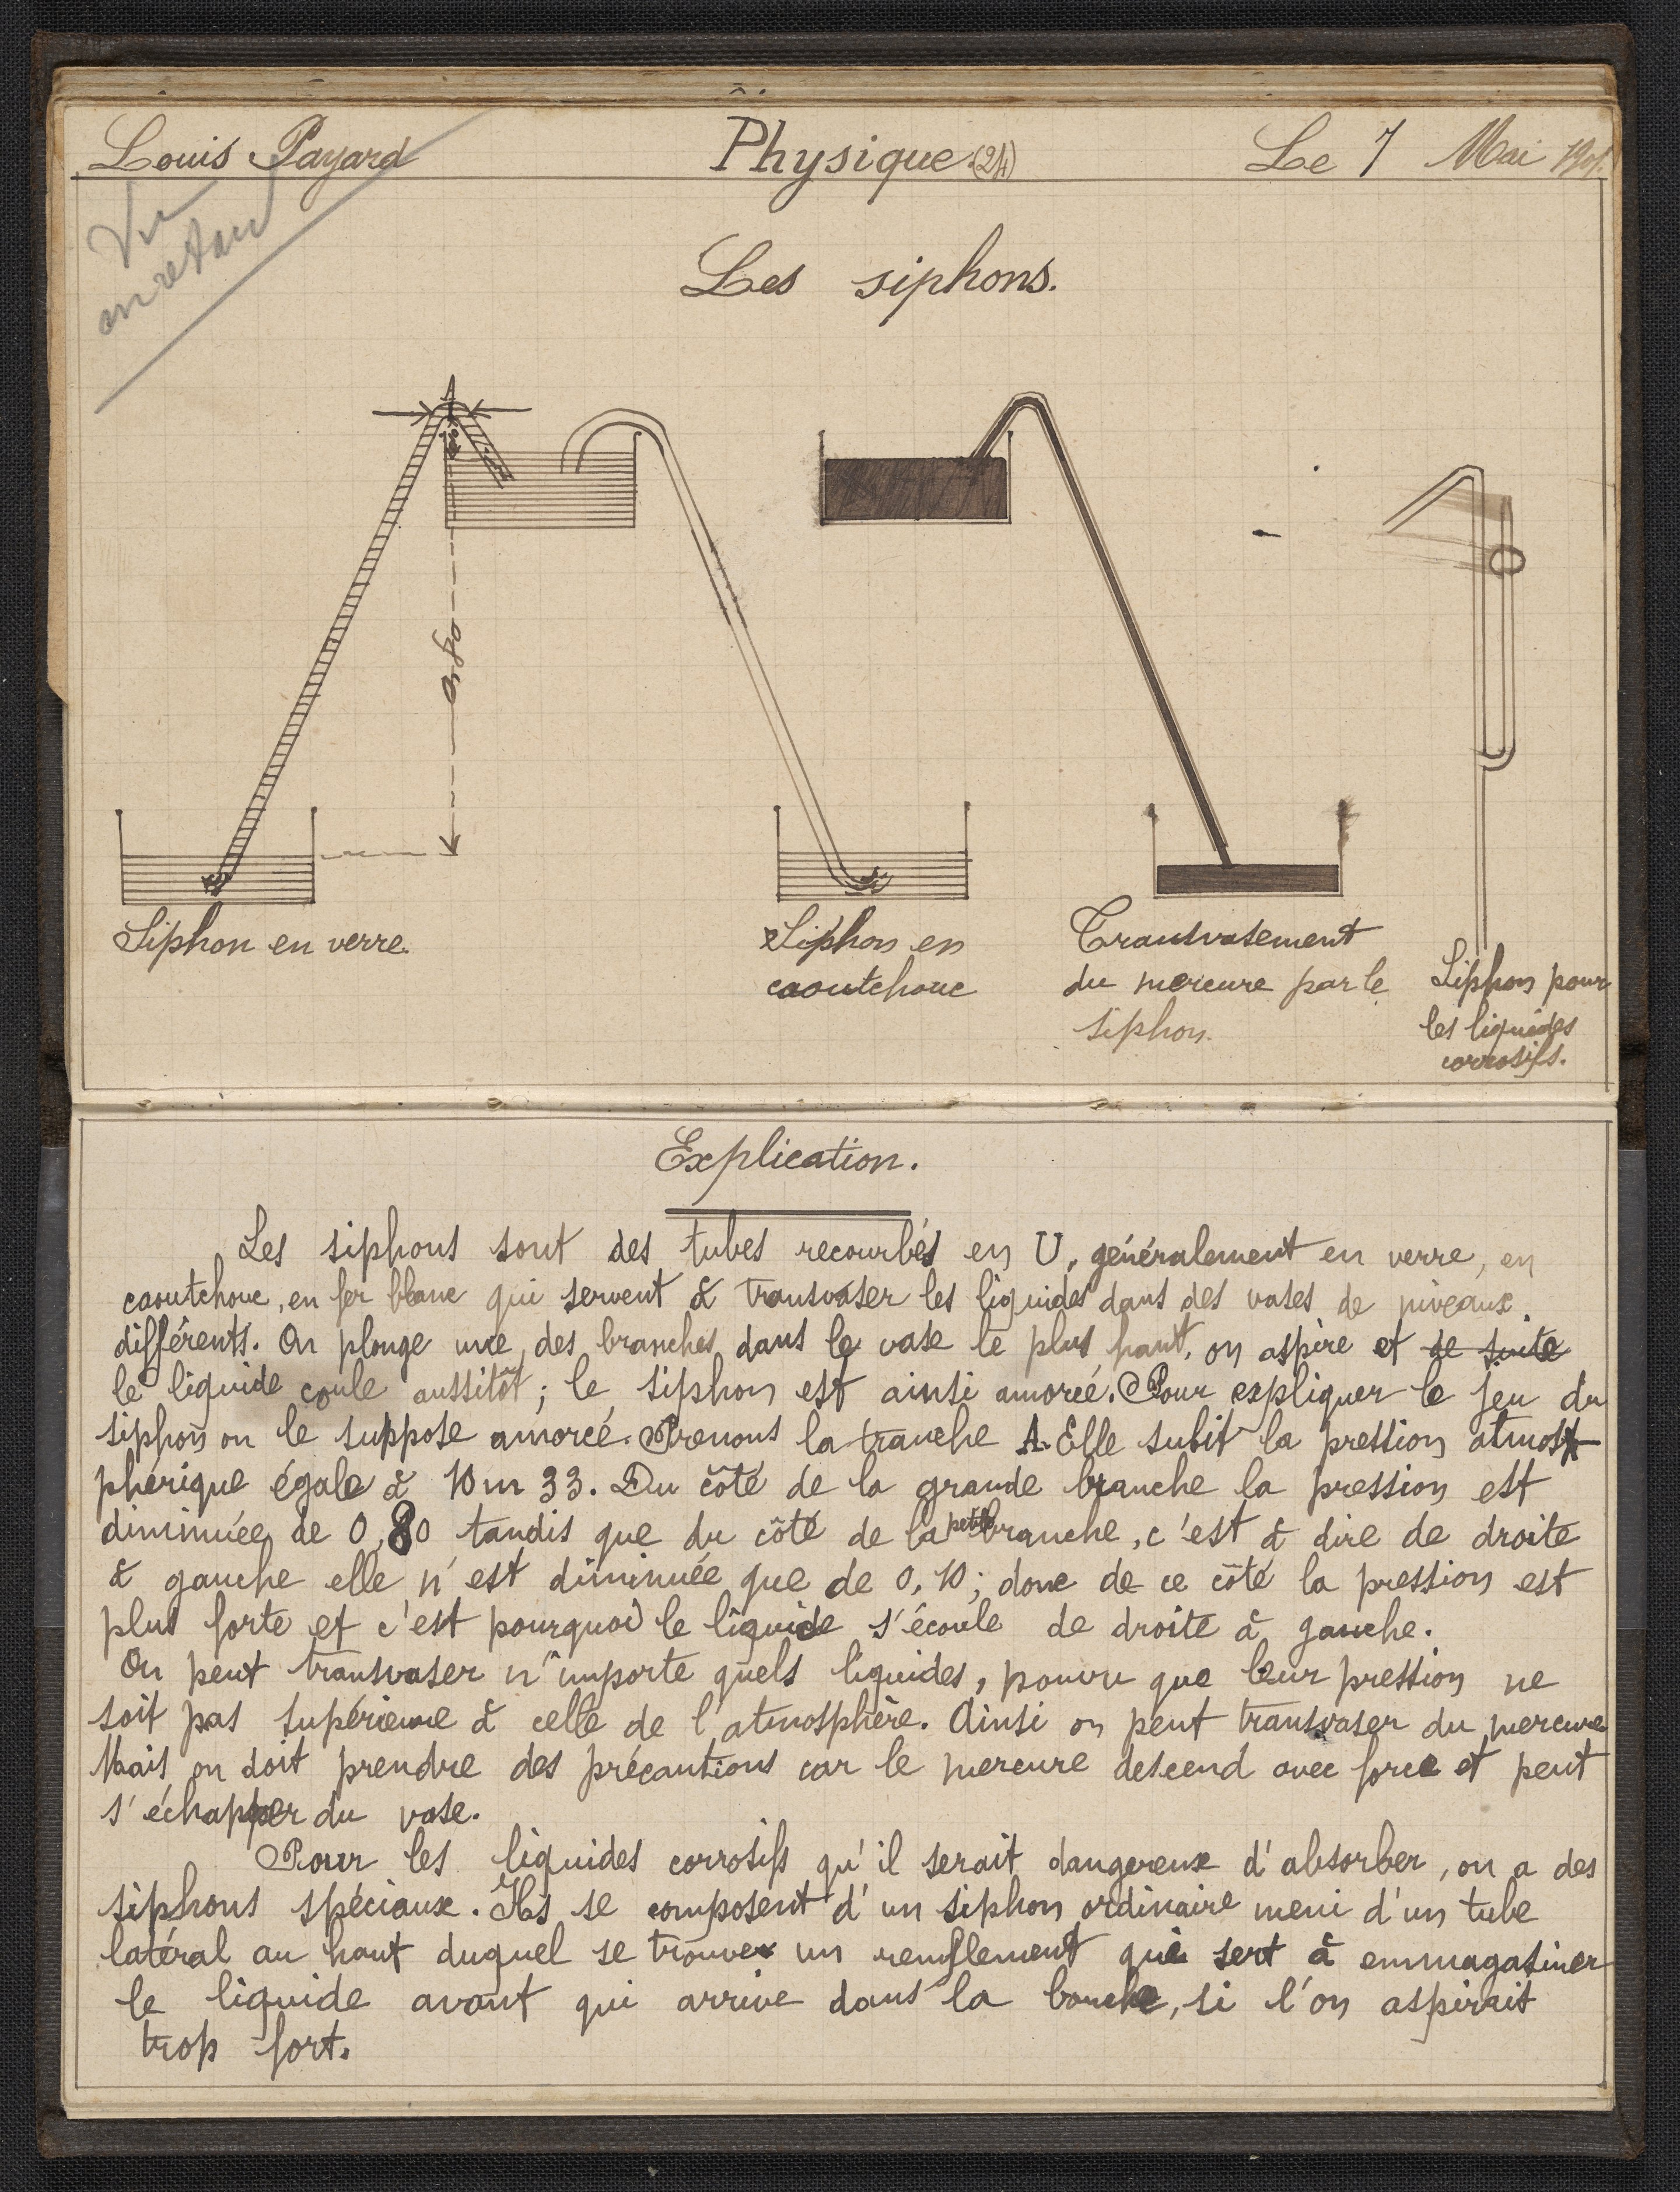 Louis Payard Physique (24) Le 7 Mai 1901
Vu
en retard
Les siphons.
A
0,10
0,80
Siphon en verre.
Siphon en
caoutchouc
Transvasement
du mercure par le
siphon.
Siphon pour
les liquides
corrosifs.
Explication.
Les siphons sont des tubes recourbés en U, généralement en verre, en
caoutchouc, en fer blanc qui servent à transvaser les liquides dans des vases de niveaux
différents. On plonge une des branches dans le vase le plus haut, on aspire et de suite
le liquide coule aussitôt ; le siphon est ainsi amorcé. Pour expliquer le jeu du
siphon on le suppose amorcé. Prenons la tranche A. Elle subit la pression atmos
phérique égale à 10 m 33. Du côté de la grande branche la pression est
diminuée de 0,80 tandis que du côté de la petite branche, c'est à dire de droite
à gauche elle n'est diminuée que de 0,10 ; donc de ce côté la pression est
plus forte et c'est pourquoi le liquide s'écoule de droite à gauche.
On peut transvaser n'importe quels liquides, pourvu que leur pression ne
soit pas supérieure à celle de l'atmosphère. Ainsi on peut transvaser du mercure
Mais on doit prendre des précautions car le mercure descend avec force et peut
s'échapper du vase.
Pour les liquides corrosifs qu'il serait dangereux d'absorber, on a des
siphons spéciaux. Ils se composent d'un siphon ordinaire muni d'un tube
latéral au haut duquel se trouve un renflement qui sert à emmagasiner
le liquide avant qui arrive dans la bouche, si l'on aspirait
trop fort.